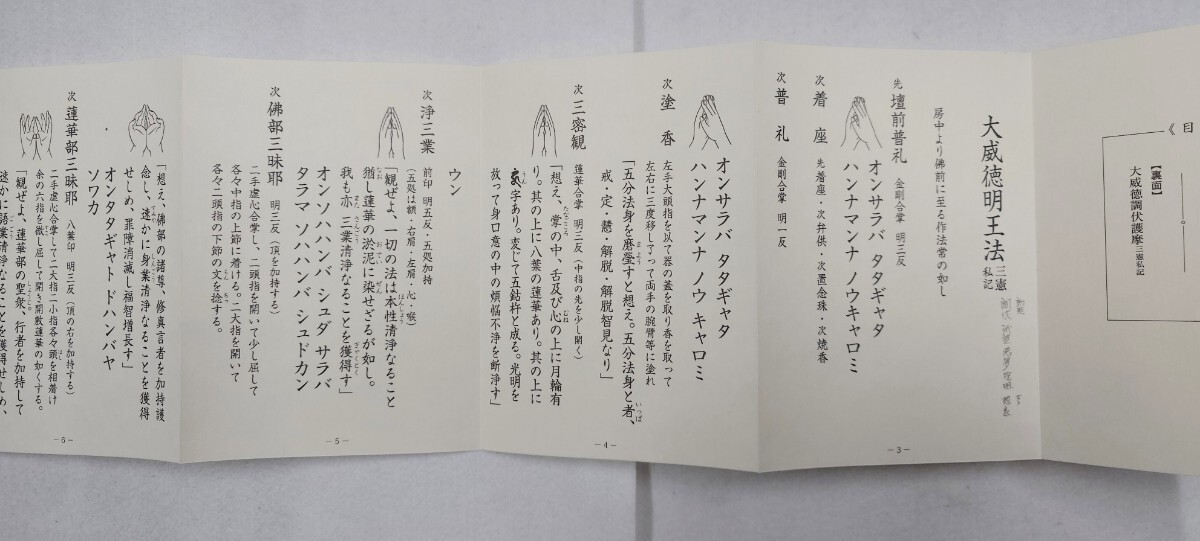 目
【裏面】
大威徳調伏護摩 三憲私記
大威徳明王法 三憲私記
房中より佛前に至る作法常の如し
先 壇前普礼 金剛合掌 明三反
オンサラバ タタギャタ
ハンナマンナ ノウキャロミ
次 着座 先着座・次弁供・次置念珠・次焼香
次 普礼 金剛合掌 明一反
－3－
オンサラバ タタギャタ
ハンナマンナ ノウ キャロミ
次 塗香 左手大頭指を以て器の蓋を取り香を取って
左右に三度移し了って両手の腕臂等に塗れ
「五分法身を磨瑩すと想え。五分法身と者、
戒・定・慧・解脱・解脱智見なり」
次 三密観 蓮華合掌 明三反（中指の先を少し開く）
「想え、掌の中、舌及び心の上に月輪有
り。其の上に八葉の蓮華あり。其の上に
字あり。変じて五鈷杵と成る。光明を
放って身口意の中の煩悩不浄を断浄す」
－4－
ウン
次 浄三業 前印 明五反・五処加持
（五処は額・右肩・左肩・心・喉）
「観ぜよ、一切の法は本性清浄なること
猶し蓮華の淤泥に染せざるが如し。
我も亦 三業清浄なることを獲得す」
オンソハハンバ シュダ サラバ
タラマ ソハハンバ シュドカン
次 佛部三昧耶 明三反（頂を加持する）
二手虚心合掌し、二頭指を開いて少し屈して
各々中指の上節に着ける。二大指を開いて
各々二頭指の下節の文を捻する。
－5－
「想え、佛部の諸尊、修真言者を加持護
念し、速かに身業清浄なることを獲得
せしめ、罪障消滅し福智増長す」
オンタタギャト ドハンバヤ
ソワカ
次 蓮華部三昧耶 八葉印 明三反（頂の右を加持する）
二手虚心合掌して二大指二小指各々頭を相着け
余の六指を微し屈して開き開敷蓮華の如くする。
「観ぜよ、蓮華部の聖衆、行者を加持して
速かに語業清浄なることを獲得せしめ、
－6－